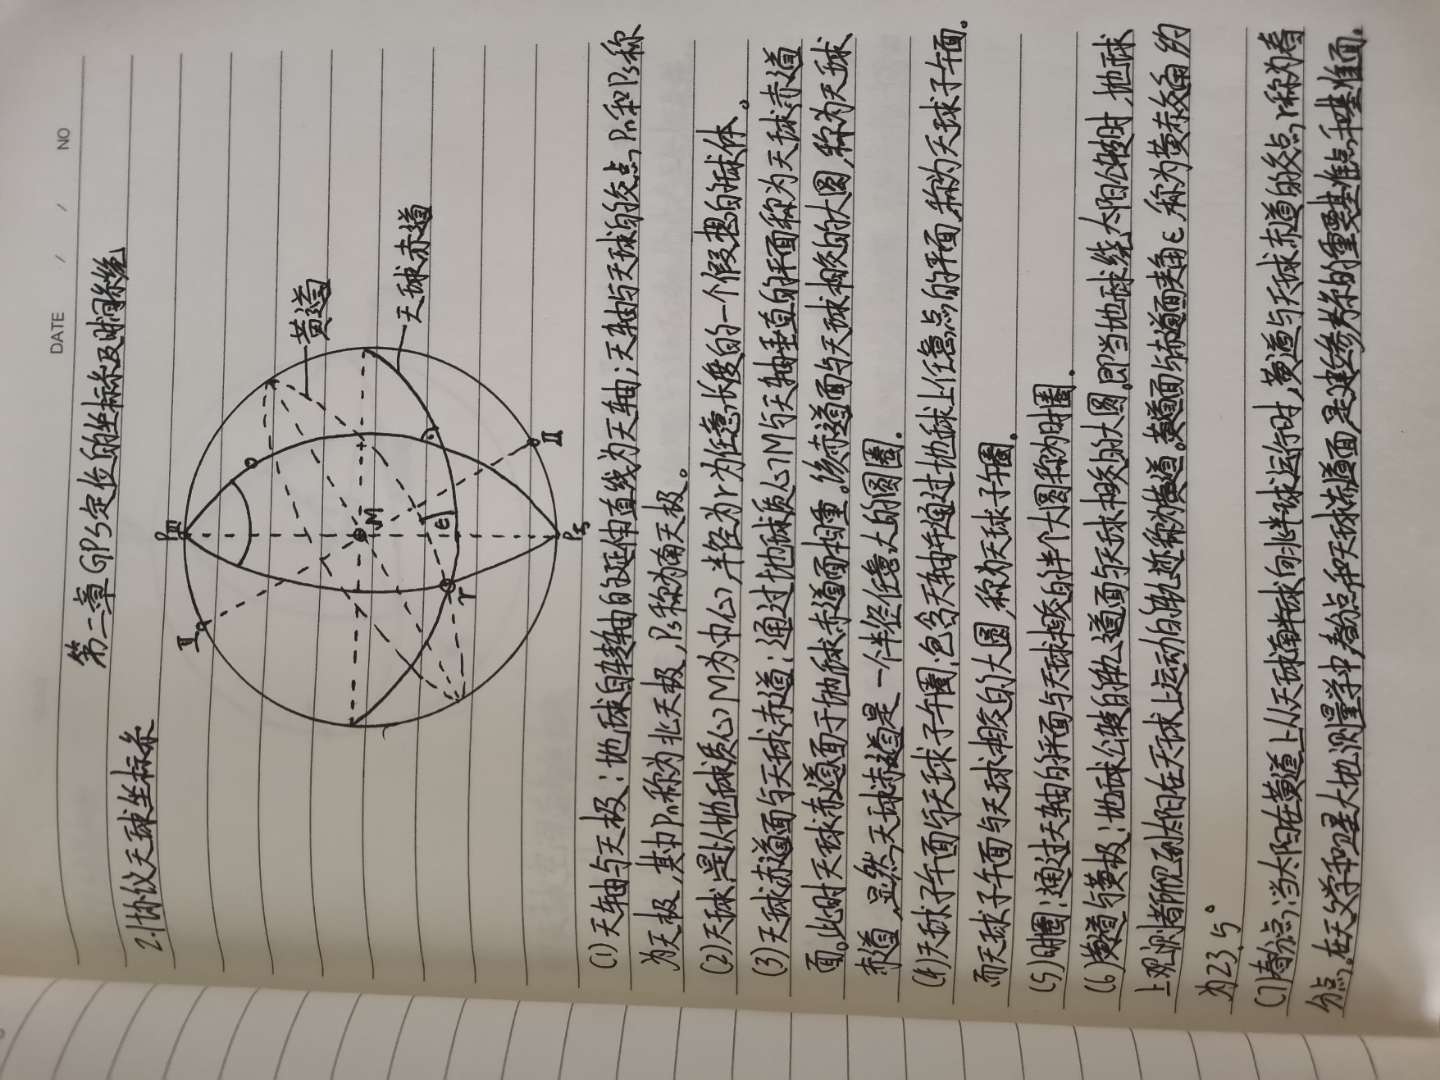 DATE / / NO
第二章 GPS定位的坐标系及时间系统
2.1协议天球坐标系
Pn
黄道
天球赤道
M
ε
r
Ps
Π
Π
(1)天轴与天极：地球自转轴的延伸直线为天轴；天轴与天球的交点Pn和Ps称
为天极，其中Pn称为北天极，Ps称为南天极。
(2)天球：是以地球质心M为中心，半径为r为任意长度的一个假想的球体。
(3)天球赤道面与天球赤道：通过地球质心M与天轴垂直的平面称为天球赤道
面。此时天球赤道面于地球赤道面相重。该赤道面与天球相交的大圆，称为天球
赤道，显然，天球赤道是一个半径任意大的圆圈。
(4)天球子午面与天球子午圈：包含天轴并通过地球上任意点的平面，称为天球子午面。
而天球子午面与天球相交的大圆，称为天球子午圈。
(5)时圈：通过天轴的平面与天球相交的半个大圆称为时圈。
(6)黄道与黄极：地球公转的轨道面与天球相交的大圆，即当地球绕太阳公转时，地球
上观测者所见到太阳在天球上运动的轨迹称为黄道。黄道面与赤道面夹角ε，称为黄赤交角，约
为23.5°
(7)春分点：当太阳在黄道上从天球南半球向北半球运行时，黄道与天球赤道的交点r称为春
分点。在天文学和卫星大地测量学中，春分点和天球赤道面，是建立参考系的重要基准点和基准面。